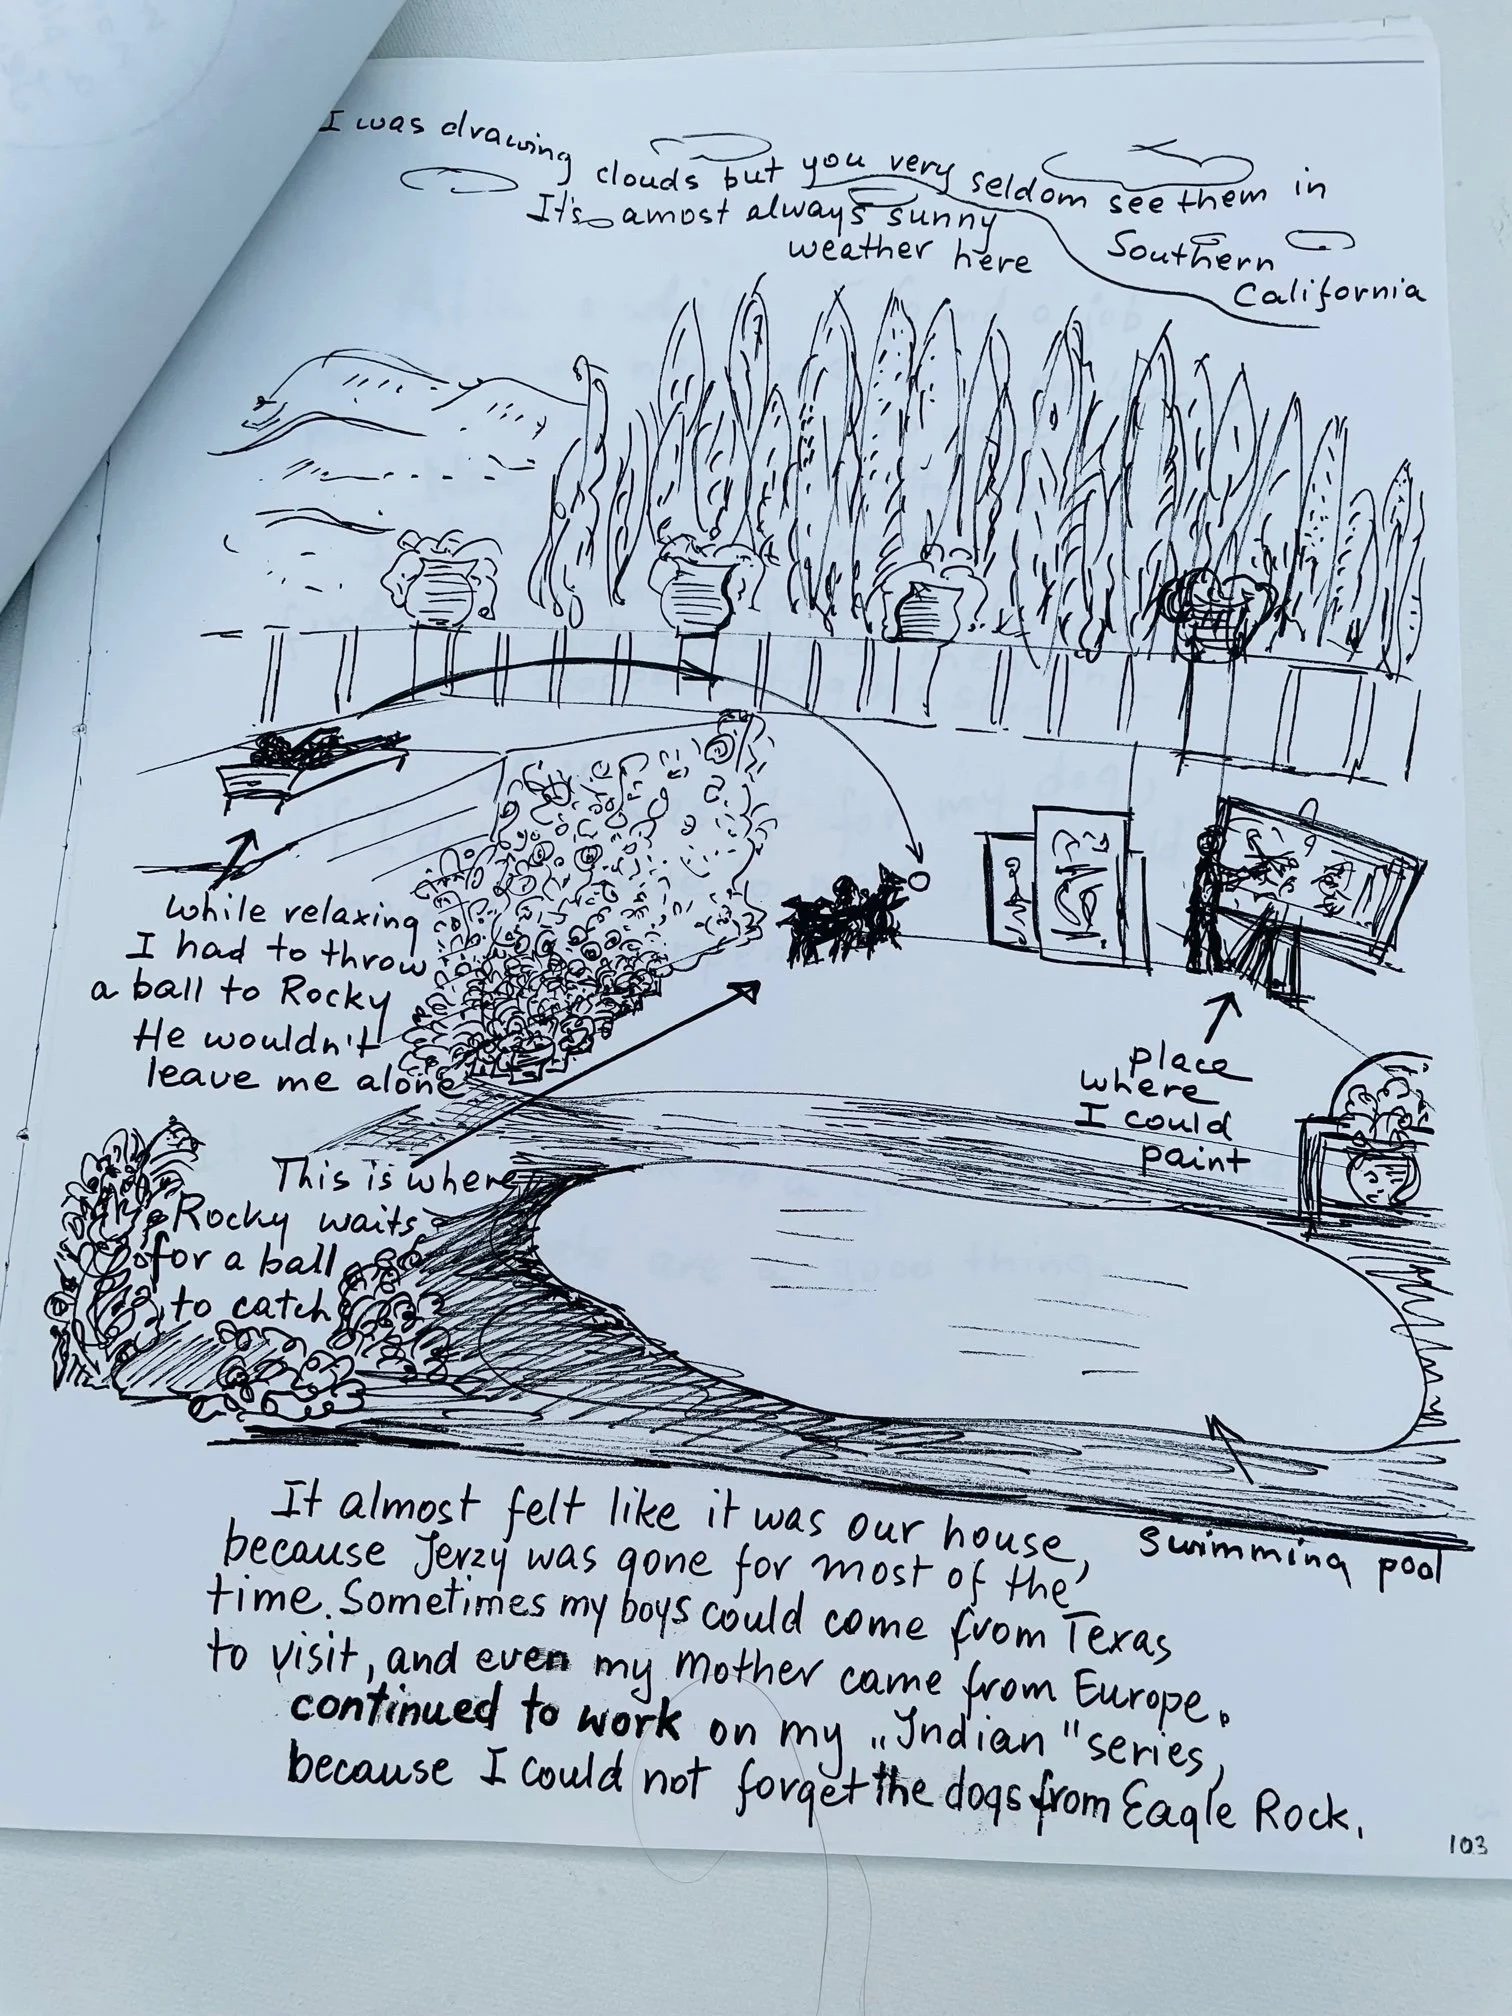 I was drawing clouds but you very seldom see them in
Southern
California
It's amost always sunny
weather here
while relaxing
I had to throw
a ball to Rocky
He wouldn't
leave me alone
place
where
I could
paint
This is where
Rocky waits
for a ball
to catch
Swimming pool
It almost felt like it was our house,
because Jerzy was gone for most of the
time. Sometimes my boys could come from Texas
to visit, and even my mother came from Europe.
continued to work on my „Indian" series,
because I could not forget the dogs from Eagle Rock.
103